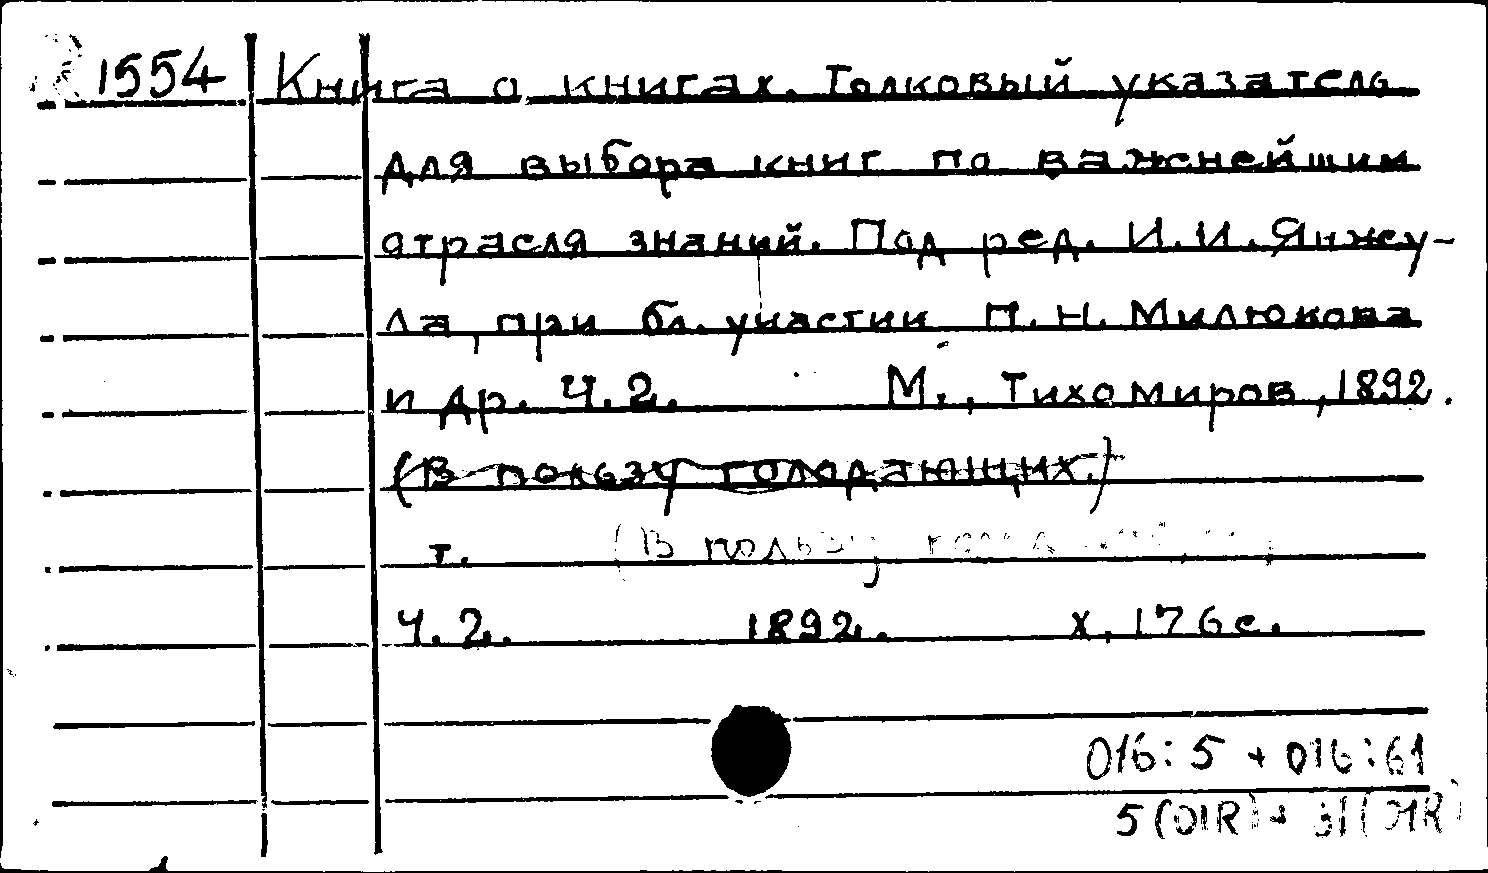 1554 Книга о книгах. Толковый указатель
для выбора книг по важнейшим
отрасля знаний. Под ред. И.И. Янжу-
ла, при бл. участии П.Н. Милюкова
и др. Ч.2. М., Тихомиров, 1892.
(В пользу голодающих.)
т. (В пользу
Ч.2. 1892. X, 176 с.
016:5 + 016:61
5(01R) + 31(01R)